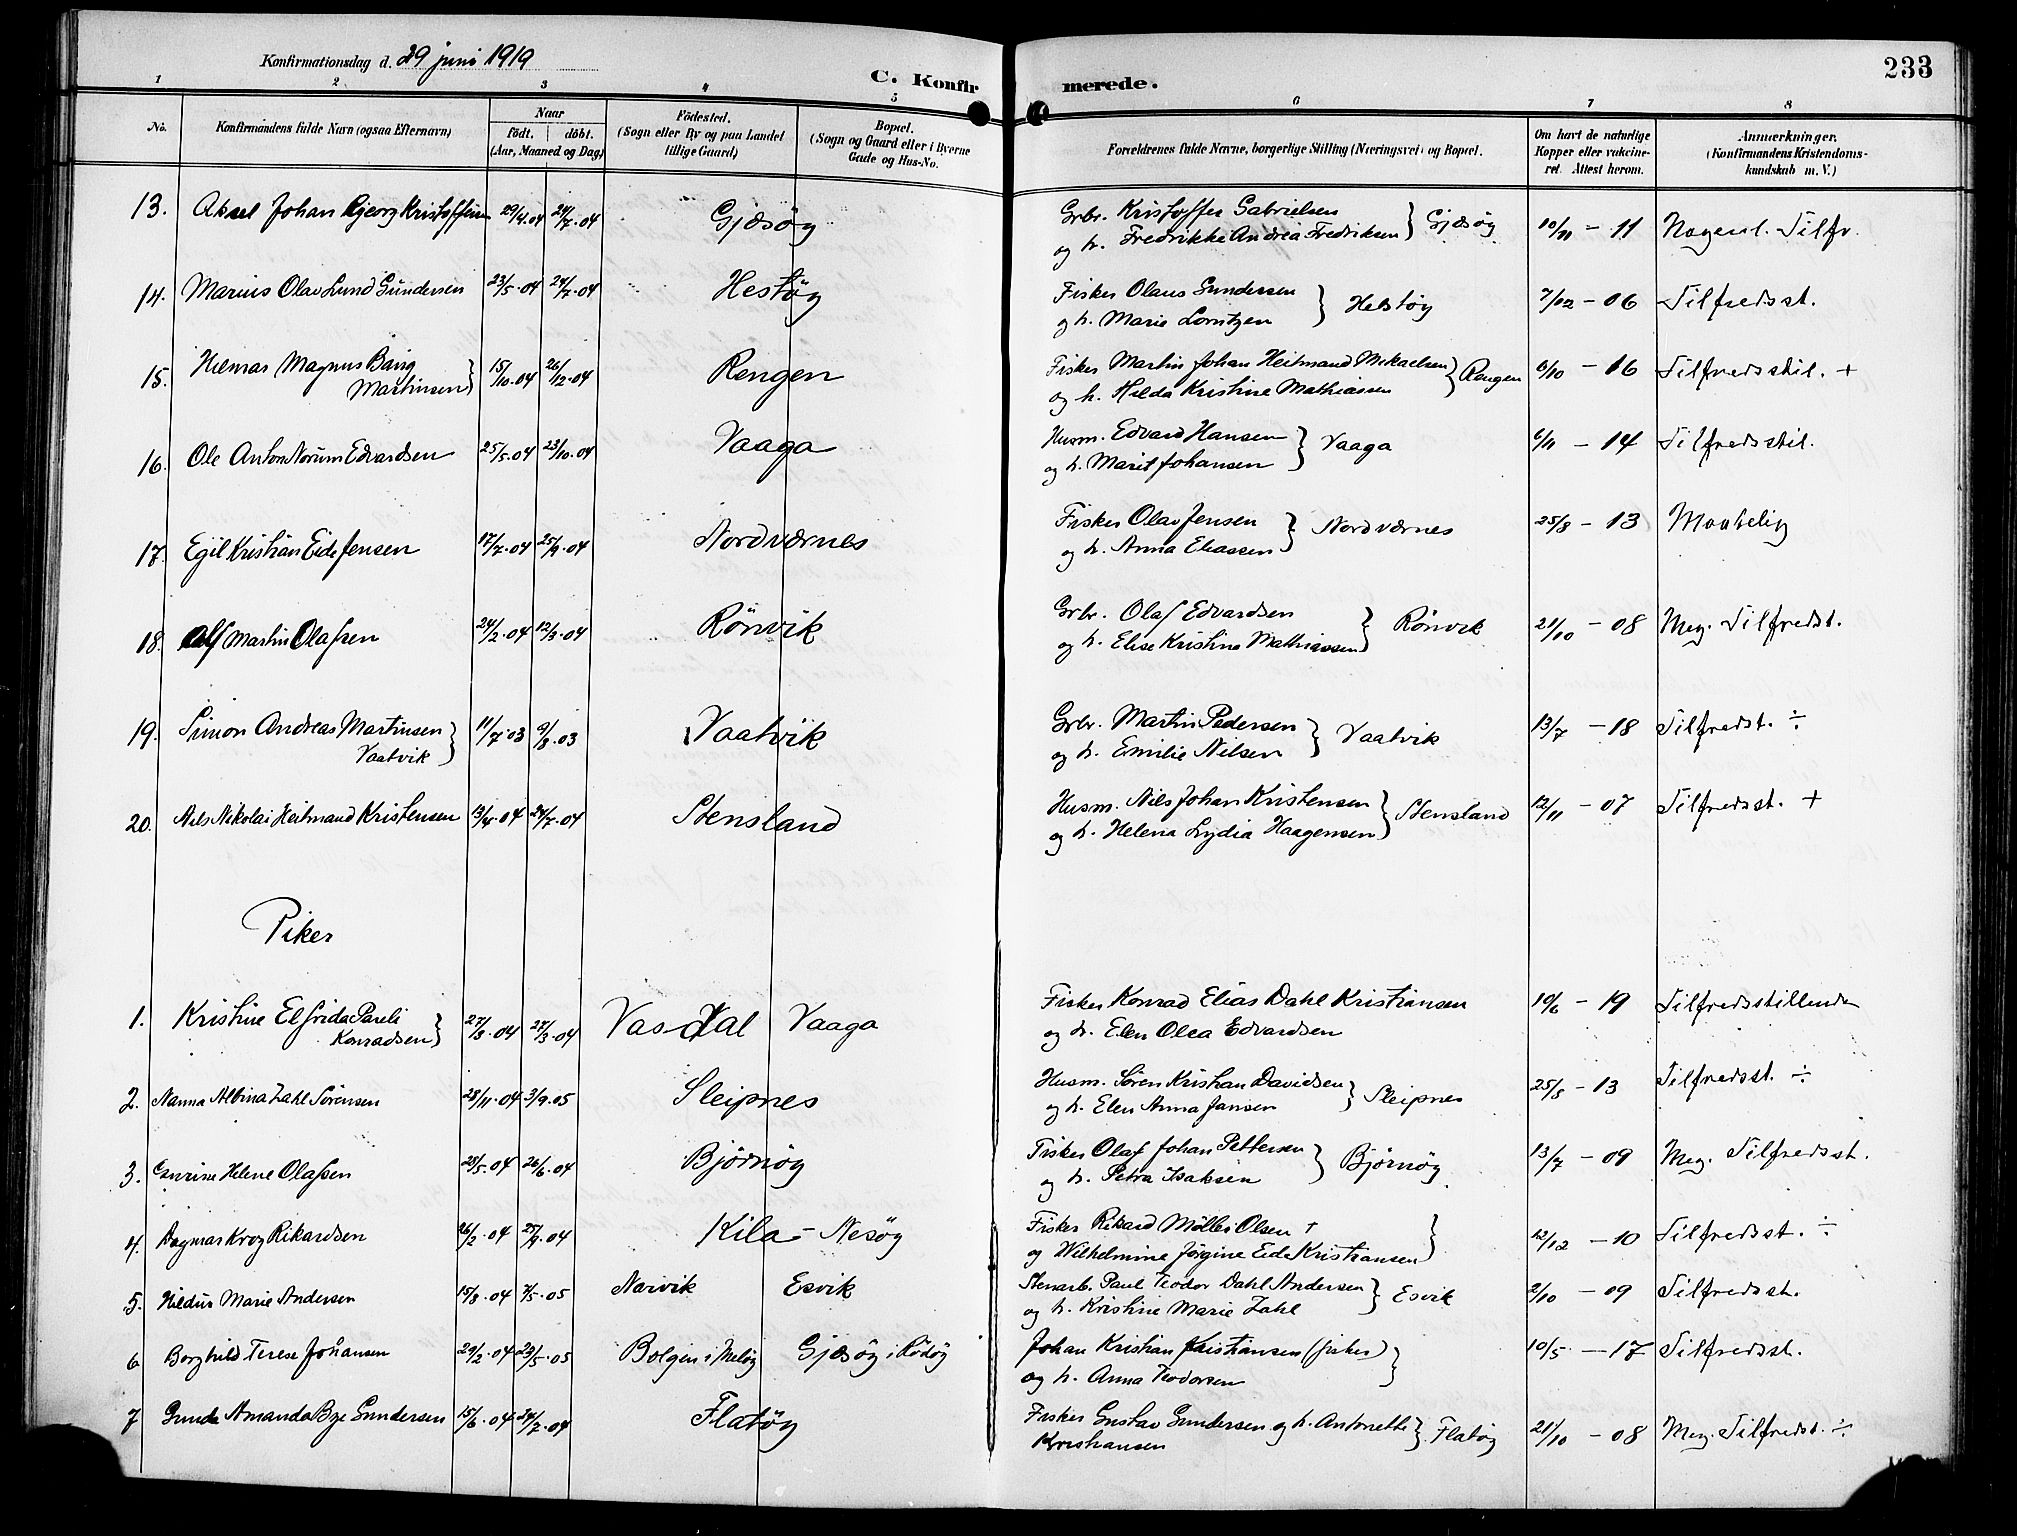 Konfirmationsdag d. 29 juni 1919
C. Konfirmerede.
233
1 2 3 4 5 6 7 8
No. Konfirmandens fulde Navn (ogsaa Efternavn) Naar født. døbt. (Aar, Maaned og Dag) Fødested. (Sogn eller By og paa Landet tillige Gaard) Bopæl. (Sogn og Gaard eller i Byerne Gade og Hus-No. Forældrenes fulde Navne, borgerlige Stilling (Næringsvei) og Bopæl. Om havt de naturlige Kopper eller vakcineret. Attest herom. Anmærkninger. (Konfirmandens Kristendomskundskab m. V.)
13. Aksel Johan Kristoffersen 29/4.04 24/7.04 Gjæsöy Grbr. Kristoffer Gabrielsen
og h. Fredrikke Andrea Fredriksen } Gjæsöy 10/11 - 11 Nogenl. Tilfr.
14. Marius Olav Lund Gundersen 23/5.04 24/7.04 Hestöy Fisker Olaus Gundersen
og h. Marie Lorntzen } Hestöy 7/02 - 06 Tilfredsst.
15. Hilmar Magnus Bang
Martinsen } 15/10.04 26/12.04 Rengen Fisker Martin Johan Heitmand Mikaelsen
og h. Hilda Kristine Mathiassen } Rengen 6/10 - 16 Tilfredsstil. +
16. Ole Anton Norum Edvardsen 25/5.04 23/10.04 Vaaga Husm. Edvard Hansen
og h. Marit Johansen } Vaaga 6/11 - 14 Tilfredsstil.
17. Egil Kristian Eide Jensen 17/7.04 25/9.04 Nordværnes Fisker Olav Jensen
og h. Anna Eliassen } Nordværnes 25/8 - 13 Maatelig
18. Alf Martin Olafsen 24/2.04 12/3.04 Rönvik Grbr. Olaf Edvardsen
og h. Elise Kristine Mathiassen } Rönvik 21/10 - 08 Meg. Tilfredst.
19. Simon Andreas Martinsen
Vaatvik } 11/7.03 9/8.03 Vaatvik Grbr. Martin Pedersen
og h. Emilie Nilsen } Vaatvik 13/7 - 18 Tilfredst. ÷
20. Nils Nikolai Heitmand Kristensen 13/4.04 24/7.04 Stensland Husm. Nils Johan Kristensen
og h. Helena Lydia Haagensen } Stensland 12/11 - 07 Tilfredsst. +
Piker
1. Kristine Elfrida Pareli
Konradsen } 27/3.04 27/3.04 Vasdal Vaaga Fisker Konrad Elias Dahl Kristiansen
og h. Elen Olea Edvardsen 10/6 - 19 Tilfredsstillende
2. Nanna Albina Zahl Sörensen 28/11.04 3/9.05 Sleipnes Husm. Sören Kristian Davidsen
og h. Elen Anna Jansen } Sleipnes 25/8 - 13 Tilfredsst. ÷
3. Helene Olafsen 28/5.04 26/6.04 Björnöy Fisker Olaf Johan Pettersen
og h. Petra Isaksen } Björnöy 13/7 - 09 Meg. Tilfredsst.
4. Dagmar Krog Rikardsen 26/2.04 25/9.04 Kila - Nesöy Fisker Rikard Möller Olsen †
og Wilhelmine Jörgine Eide Kristiansen } 12/12 - 10 Tilfredsst. ÷
5. Hildur Marie Andersen 15/8.04 7/5.05 Narvik Esvik Stenarb. Paul Teodor Dahl Andersen
og h. Kristine Marie Zahl } Esvik 2/10 - 09 Tilfredsst.
6 Borghild Terese Johansen 29/2.04 23/5.05 Bolgen i Melöy Gjæsöy i Rödöy Johan Kristian Kristiansen (fisker)
og h. Anna Teodorsen } 10/5 - 17 Tilfredsst.
7 Gunda Amanda Bye Gundersen 15/6.04 24/7.04 Flatöy Fisker Gustav Gundersen og h. Antonette
Kristiansen } Flatöy 21/10 - 08 Meg. Tilfredst. ÷